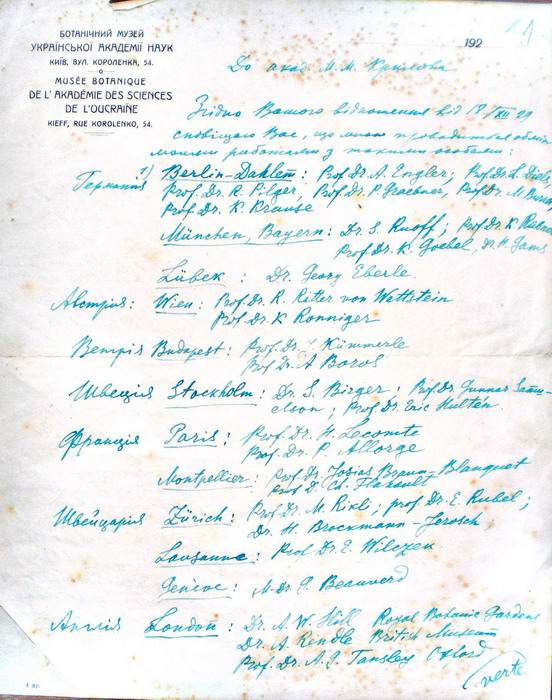 БОТАНІЧНИЙ МУЗЕЙ
УКРАЇНСЬКОЇ АКАДЕМІЇ НАУК
КИЇВ, ВУЛ. КОРОЛЕНКА, 54.
MUSÉE BOTANIQUE
DE L'ACADÉMIE DES SCIENCES
DE L'OUCRAÏNE
KIEFF, RUE KOROLENKO, 54.
192
До акад. М. М. Крилова
Згідно Вашого відношення від 18/XII 29
сповіщаю Вас, що мною провадиться обмін
моїми работами з такими особами:
Германія 1) Berlin-Dahlem: Prof. Dr. A. Engler; Prof. Dr. L. Diels
Prof. Dr. R. Pilger, Prof. Dr. P. Graebner, Prof. Dr. M. Burret
Prof. Dr. K. Krause
München, Bayern: Dr. S. Ruoff; Prof. Dr. K.
Prof. Dr. K. Goebel, Dr. H. Gams
Lübek: Dr. Georg Eberle.
Австрія: Wien: Prof. Dr. R. Ritter von Wettstein
Prof. Dr. K Ronniger
Венгрія Budapest: Prof. Dr. Kümmerle
Prof Dr. A Boros
Швеція Stockholm: Dr. S. Birger; Prof. Dr. Gunnar Samu-
elson; Prof. Dr. Eric Hultén.
Франція Paris: Prof. Dr. H. Lecomte
Prof. Dr. P. Allorge
Montpellier: Prof. Dr. Josias Braun-Blanquet
Prof D. Ch. Flahault
Швейцарія Zürich: Prof. Dr. M. Rikli; prof. Dr. E. Rubel;
Dr. H. Brockmann-Jerosch;
Lausanne: Prof Dr. E. Wilczek
Genève: M. Dr. G. Beauverd
Англія London: Dr. A. W. Hill Royal Botanic Gardens
Dr. A. Rendle British Museum
Prof. Dr. A. G. Tansley Oxford
(verte